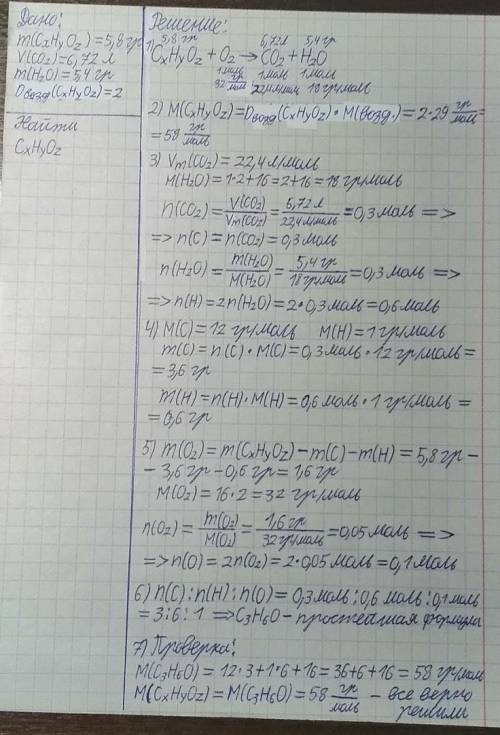 Дано:
m(CxHyOz)=5,8гр
V(CO2)=6,72л
m(H2O)=5,4гр
Dвозд(CxHyOz)=2
Найти
CxHyOz
Решение:
5,8гр 6,72л 5,4гр
1) CxHyOz + O2 → CO2 + H2O
1моль 1моль 1моль
32 гр/моль 22,4л/моль 18гр/моль
2) M(CxHyOz)=Dвозд(CxHyOz)•M(возд.)=2•29 гр/моль=
=58 гр/моль
3) Vm(CO2)=22,4л/моль
M(H2O)=1•2+16=2+16=18гр/моль
n(CO2)=V(CO2)/Vm(CO2)=6,72л/22,4л/моль=0,3моль =>
=> n(C)=n(CO2)=0,3моль
n(H2O)=m(H2O)/M(H2O)=5,4гр/18гр/моль=0,3моль =>
=> n(H)=2n(H2O)=2•0,3моль=0,6моль
4) M(C)=12гр/моль M(H)=1гр/моль
m(C)=n(C)•M(C)=0,3моль•12гр/моль=
=3,6гр
m(H)=n(H)•M(H)=0,6моль•1гр/моль=
=0,6гр
5) m(O2)=m(CxHyOz)-m(C)-m(H)=5,8гр-
-3,6гр-0,6гр=1,6гр
M(O2)=16•2=32гр/моль
n(O2)=m(O2)/M(O2)=1,6гр/32гр/моль=0,05моль =>
=> n(O)=2n(O2)=2•0,05моль=0,1моль
6) n(C):n(H):n(O)=0,3моль:0,6моль:0,1моль
=3:6:1 => C3H6O-простейшая формула
7) Проверка:
M(C3H6O)=12•3+1•6+16=36+6+16=58гр/моль
M(CxHyOz)=M(C3H6O)=58 гр/моль - все верно
решили